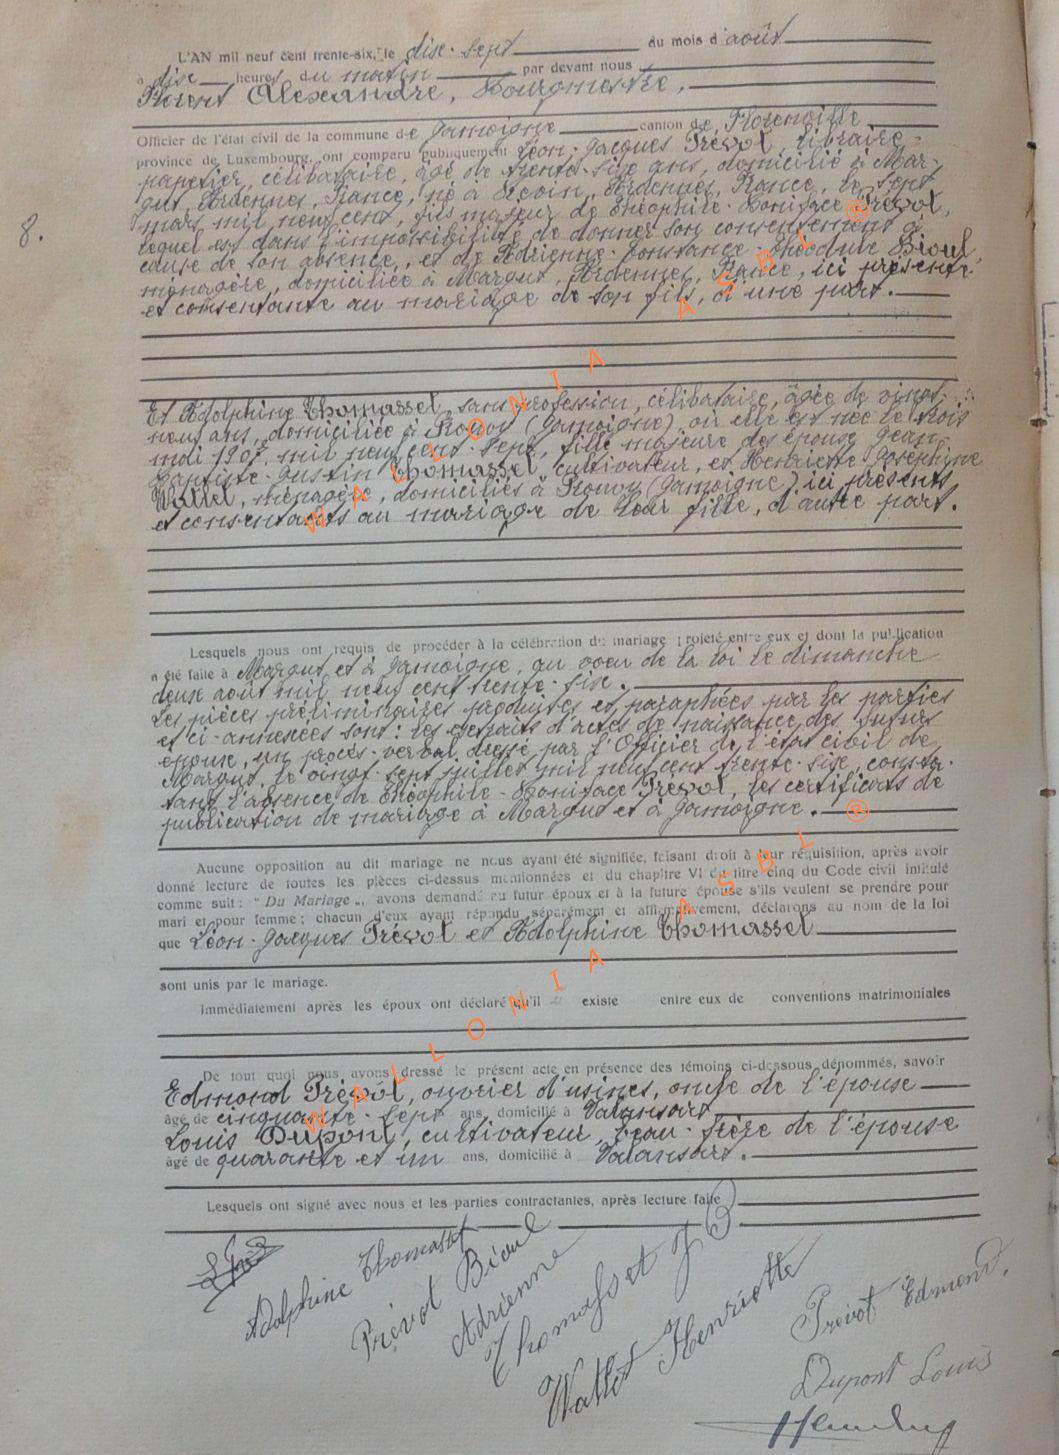 L'AN mil neuf cent trente-six, le dix-sept du mois d'août
à dix heures du matin par devant nous
Florent Alexandre, Bourgmestre,
Officier de l'état civil de la commune de Jamoigne canton de Florenville
province de Luxembourg, ont comparu publiquement Léon-Jacques Prévot, libraire-
papetier, célibataire, âgé de trente-six ans, domicilié à Mar-
gut, Ardennes, France, né à Ardennes, France, le sept
mars mil neuf cent, fils majeur de Théophile-Boniface Prévot,
lequel est dans l'impossibilité de donner son consentement à
cause de son absence, et de Adrienne-Constance- Bioul,
ménagère, domiciliée à Margut, Ardennes, France, ici présente
et consentante au mariage de son fils, d'une part.
8.
Et Adolphine Thomasset, sans profession, célibataire, âgée de vingt-
neuf ans, domiciliée à Prouvy (Jamoigne) où elle est née le trois
mai 1907, mil neuf cent-sept, fille majeure des époux Jean-
Baptiste-Justin Thomasset, cultivateur, et Henriette-Joséphine
Wattet, ménagère, domiciliés à Prouvy (Jamoigne) ici présents
et consentants au mariage de leur fille, d'autre part.
Lesquels nous ont requis de procéder à la célébration du mariage projeté entre eux et dont la publication
a été faite à Margut et à Jamoigne, au voeu de la loi le dimanche
deux août mil neuf cent trente-six.
Les pièces préliminaires produites et paraphées par les parties
et ci-annexées sont: les extraits d'actes de naissance des futurs
époux, un procès-verbal dressé par l'Officier de l'état civil de
Margut, le vingt-sept juillet mil neuf cent trente-six, consta-
tant l'absence de Théophile-Boniface Prévot, les certificats de
publication de mariage à Margut et à Jamoigne.
Aucune opposition au dit mariage ne nous ayant été signifiée, faisant droit à leur réquisition, après avoir
donné lecture de toutes les pièces ci-dessus mentionnées et du chapitre VI du titre cinq du Code civil intitulé
comme suit: "Du Mariage", avons demandé au futur époux et à la future épouse s'ils veulent se prendre pour
mari et pour femme; chacun d'eux ayant répondu séparément et affirmativement, déclarons au nom de la loi
que Léon-Jacques Prévot et Adolphine Thomasset
sont unis par le mariage.
Immédiatement après les époux ont déclaré qu'il existe entre eux de conventions matrimoniales
De tout quoi nous avons dressé le présent acte en présence des témoins ci-dessous dénommés, savoir
Edmond Prévôt, ouvrier d'usines, oncle de l'épouse
âgé de cinquante-sept ans, domicilié à Valansart
Louis Dupont, cultivateur, beau-frère de l'épouse
âgé de quarante et un ans, domicilié à Valansart.
Lesquels ont signé avec nous et les parties contractantes, après lecture faite
Adolphine Thomasset
Prévot Bioul
Adrienne
Thomasset J B
Wattet Henriette
Prevot Edmond.
Dupont Louis
WALLONIA ASBL ®
WALLONIA ASBL ®